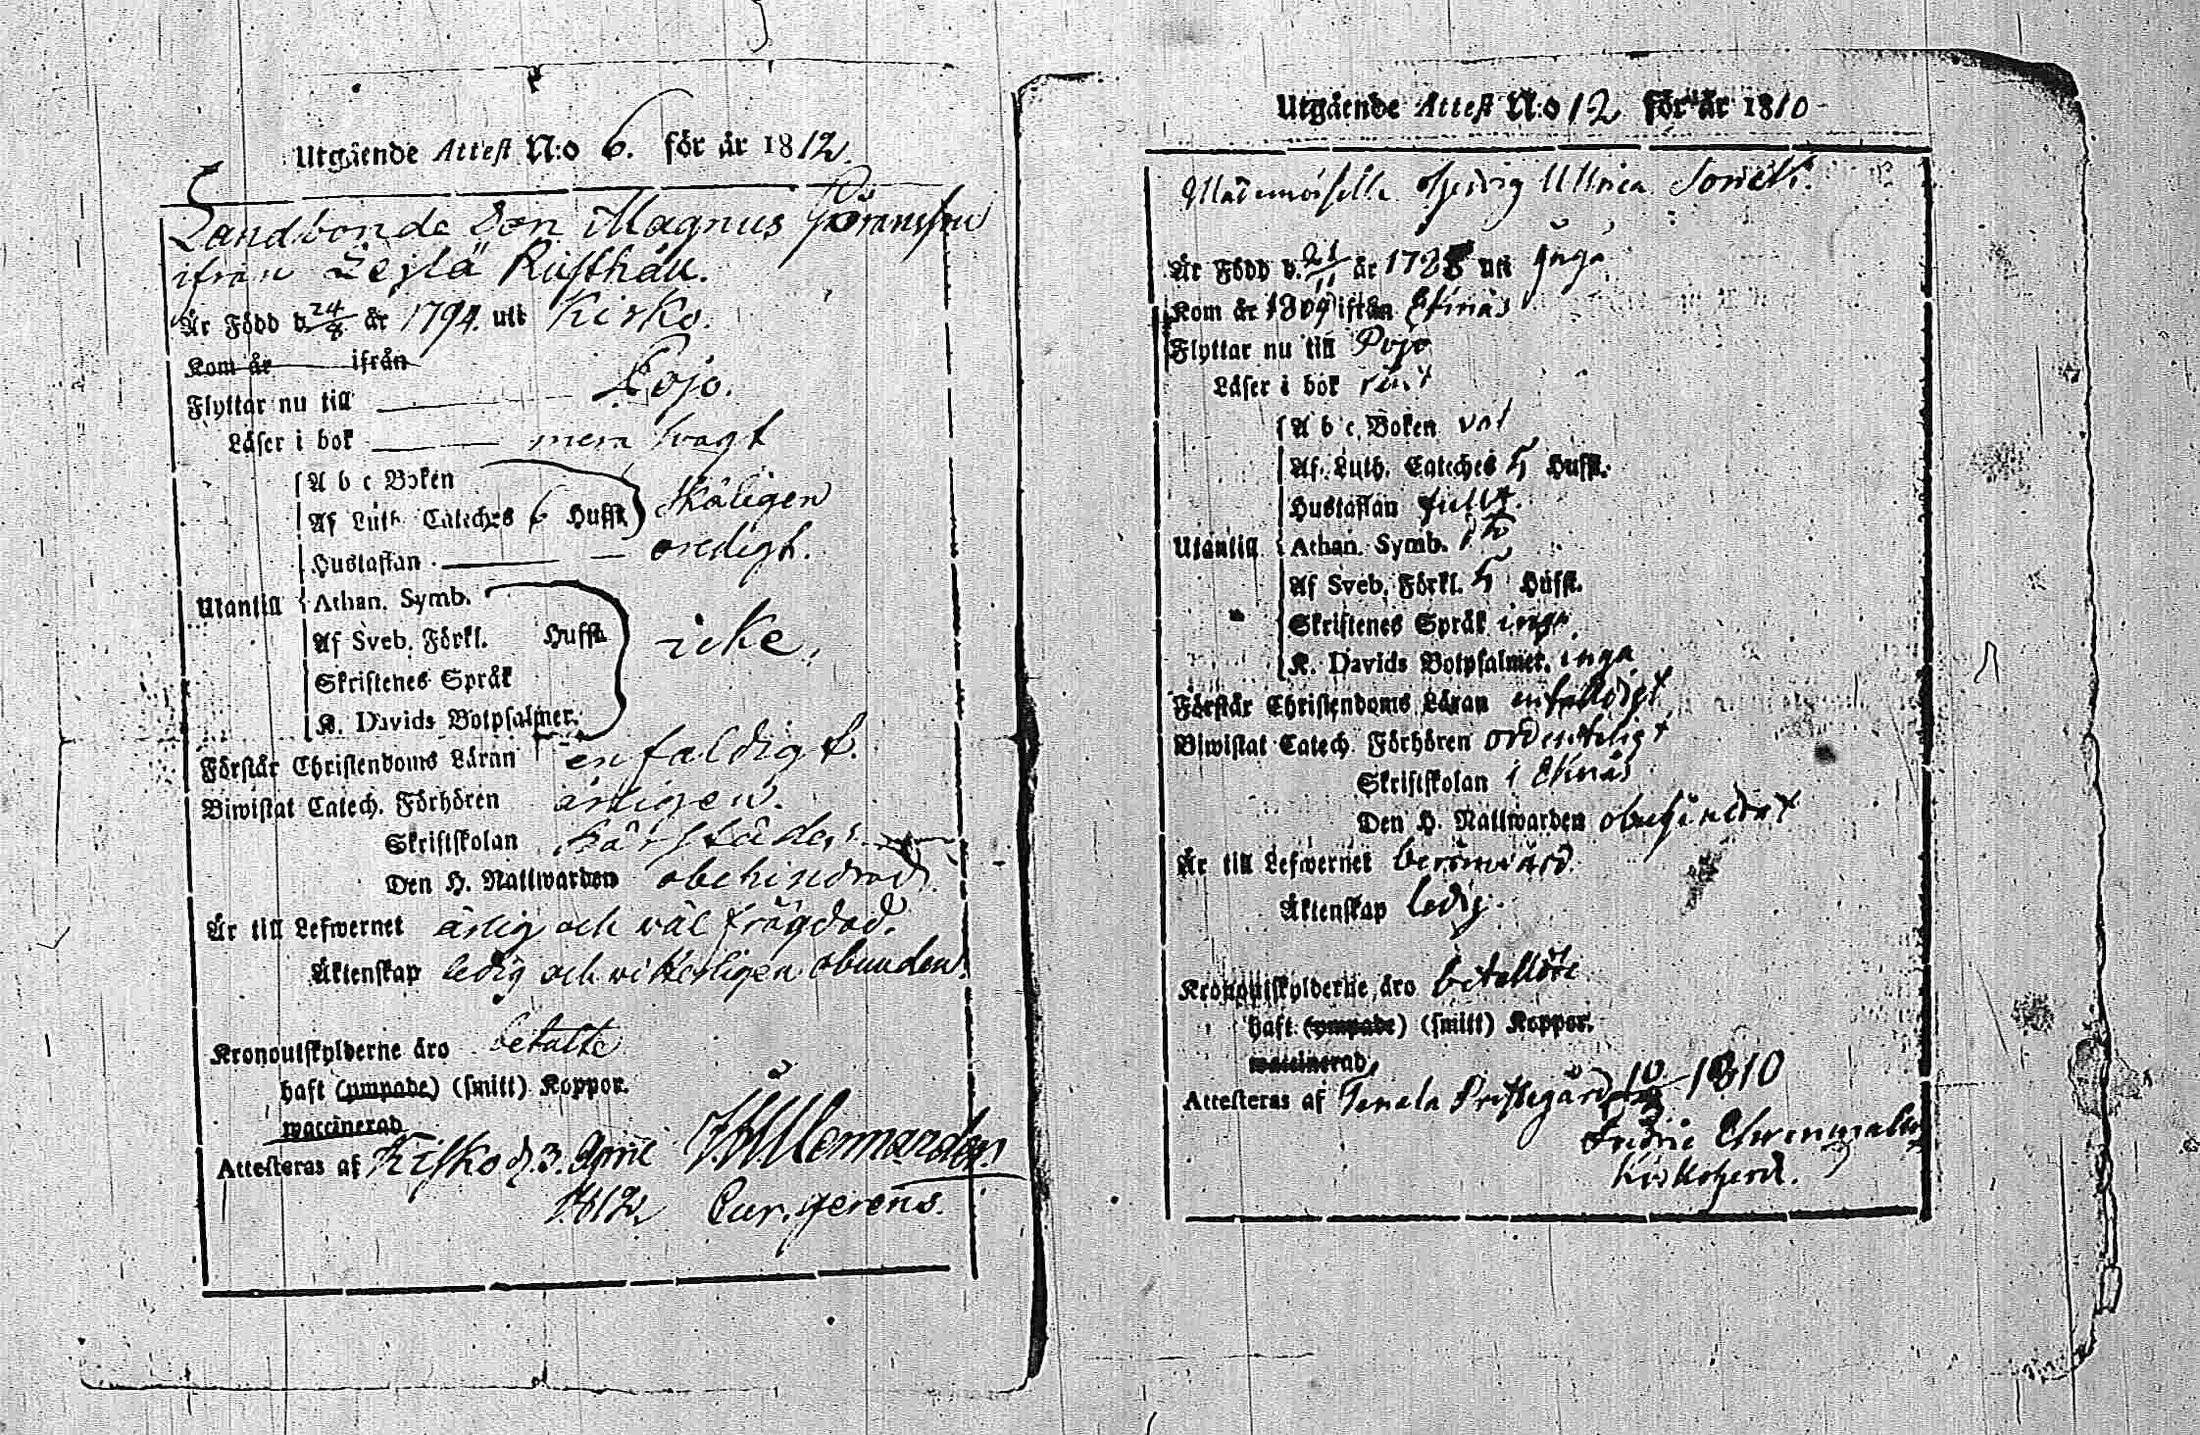 Utgående Attest N:o 6. för år 1812.
Landbonde Son Magnus Göransson
ifrån Rusthåll.
Är Född d. 24/8 år 1794. uti Kisko.
Kom år ifrån
Flyttar nu till Pojo.
Läser i bok mera svagt
A b c Boken
Af Luth. Cateches 6 Hufst. skäligen
Hustaflan oredigt.
Utantill Athan. Symb.
Af Sveb. Förkl. Hufst. icke.
Skriftenes Språk
K. Davids Botpsalmer.
Förstår Christendoms Läran enfaldigt.
Biwistat Catech. Förhören årligen.
Skriftskolan härstädes.
Den H. Nattwarden obehindrad.
Är till Lefwernet ärlig och väl frägdad.
Äktenskap ledig och vitterligen obunden.
Kronoutskylderne äro betalte
haft (ympade) (smitt) Koppor.
waccinerad
Attesteras af Kisko d. 3. April
1812. Cur. gerens.
Utgående Attest N:o 12 för år 1810
Mademoiselle Hedvig Ullrica
Är Född d. 21/11 år 178 uti Ingå
Kom år 1809 ifrån Eknäs
Flyttar nu till Pojo
Läser i bok rent
A b c Boken väl
Af Luth. Cateches 5 Hufst.
Hustaflan fullt.
Utantill Athan. Symb. do
Af Sveb. Förkl. 5 Hufst.
Skriftenes Språk inga
K. Davids Botpsalmer. inga
Förstår Christendoms Läran enfaldigt
Biwistat Catech. Förhören ordenteligt
Skriftskolan i Eknäs
Den H. Nattwarden obehindrat
Är till Lefwernet berömvärd.
Äktenskap ledig.
Kronoutskylderne äro betallte
haft (ympade) (smitt) Koppor.
waccinerad
Attesteras af Tenala Prestegård 1810
Fredric Ehrenmalm
Kirkoherd.